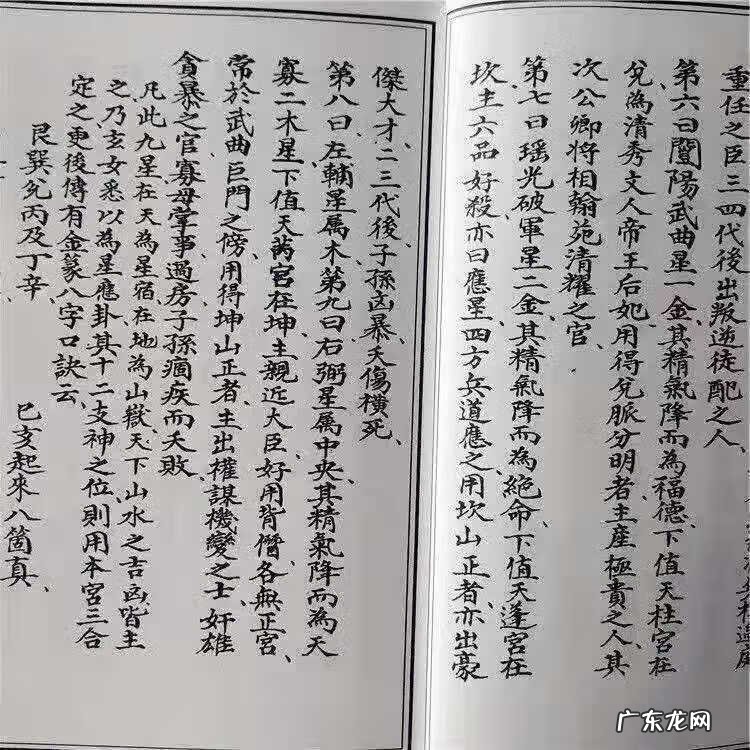 重任之臣三四代後出叛逆徒配之人、
第六曰闓陽武曲星一金、其精氣降而為福德、下值天柱宮在
兌、為清秀文人帝王后妃、用得兌脈分明者、主產極貴之人、其
次公卿將相翰苑清耀之官、
第七曰瑶光破軍星二金、其精氣降而為絕命、下值天逢宮在
坎、主六品好殺、亦曰應星、四方兵道應之、用坎山正者、亦出豪
傑大才、二三代後、子孫凶暴、夭傷橫死、
第八曰左輔星属木、第九曰右弼星属中央、其精氣降而為天
寡二木星、下值天芮宮在坤、主親近大臣、好用背僭、各無正宮、
常於武曲巨門之傍、用得坤山正者、主出權謀機變之士、奸雄
貪暴之官、寡母掌事、過房子孫痼疾而夭敗、
凡此九星在天為星宿、在地為山嶽、天下山水之吉凶、皆主
之、乃玄女悉以為星應卦、其十二支神之位、則用本宮三合
定之、更後傳有金篆八字口訣云、
艮巽兌丙及丁辛、 巳亥起來八箇真、
广东龙网